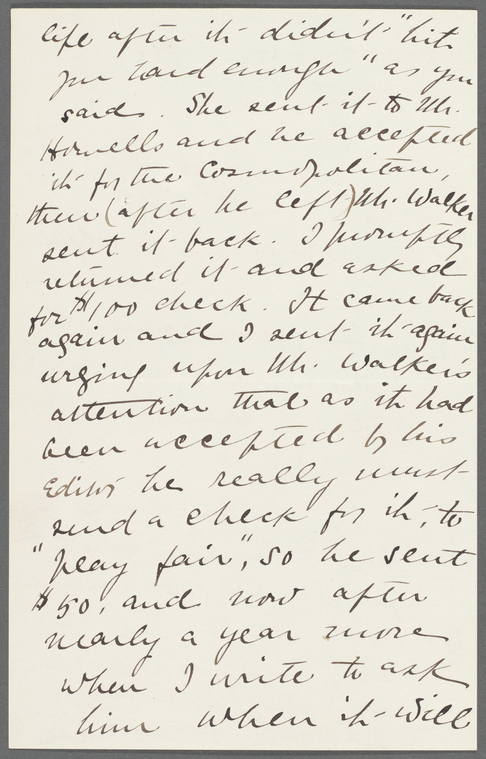 life after it didn't "hit
you hard enough" as you
said. She sent it to Mr.
Howells and he accepted
it for the Cosmopolitan,
then (after he left) Mr. Walker
sent it back. I promptly
returned it and asked
for $100 check. It came back
again and I sent it again
urging upon Mr. Walker's
attention that as it had
been accepted by his
Editor he really must
send a check for it, to
"play fair", so he sent
$50. and now after
nearly a year more
when I write to ask
him when it will